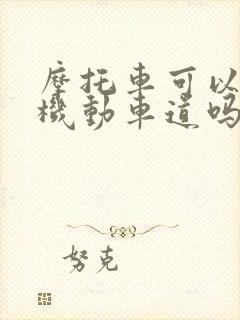 摩托車可以
機動車道吗
努克